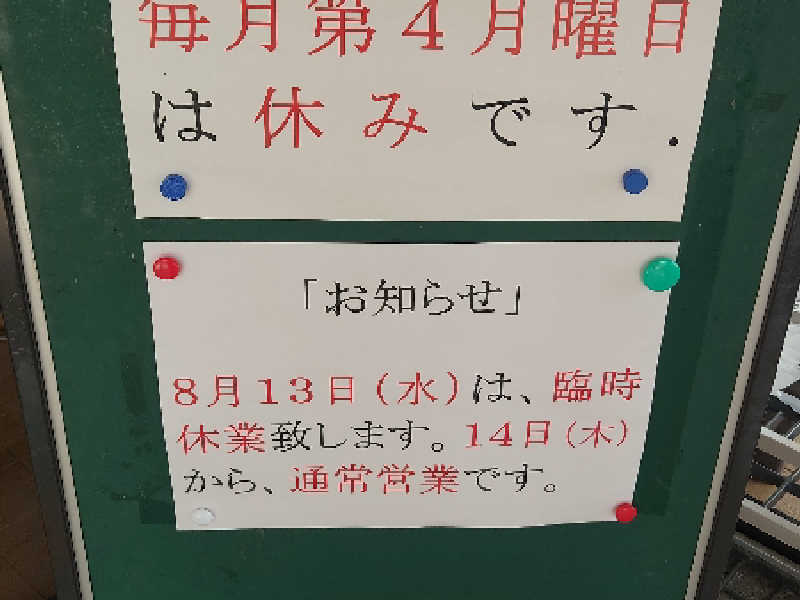 毎月第４月曜日
は休みです.
「お知らせ」
８月１３日（水）は、臨時
休業致します。１４日（木）
から、通常営業です。